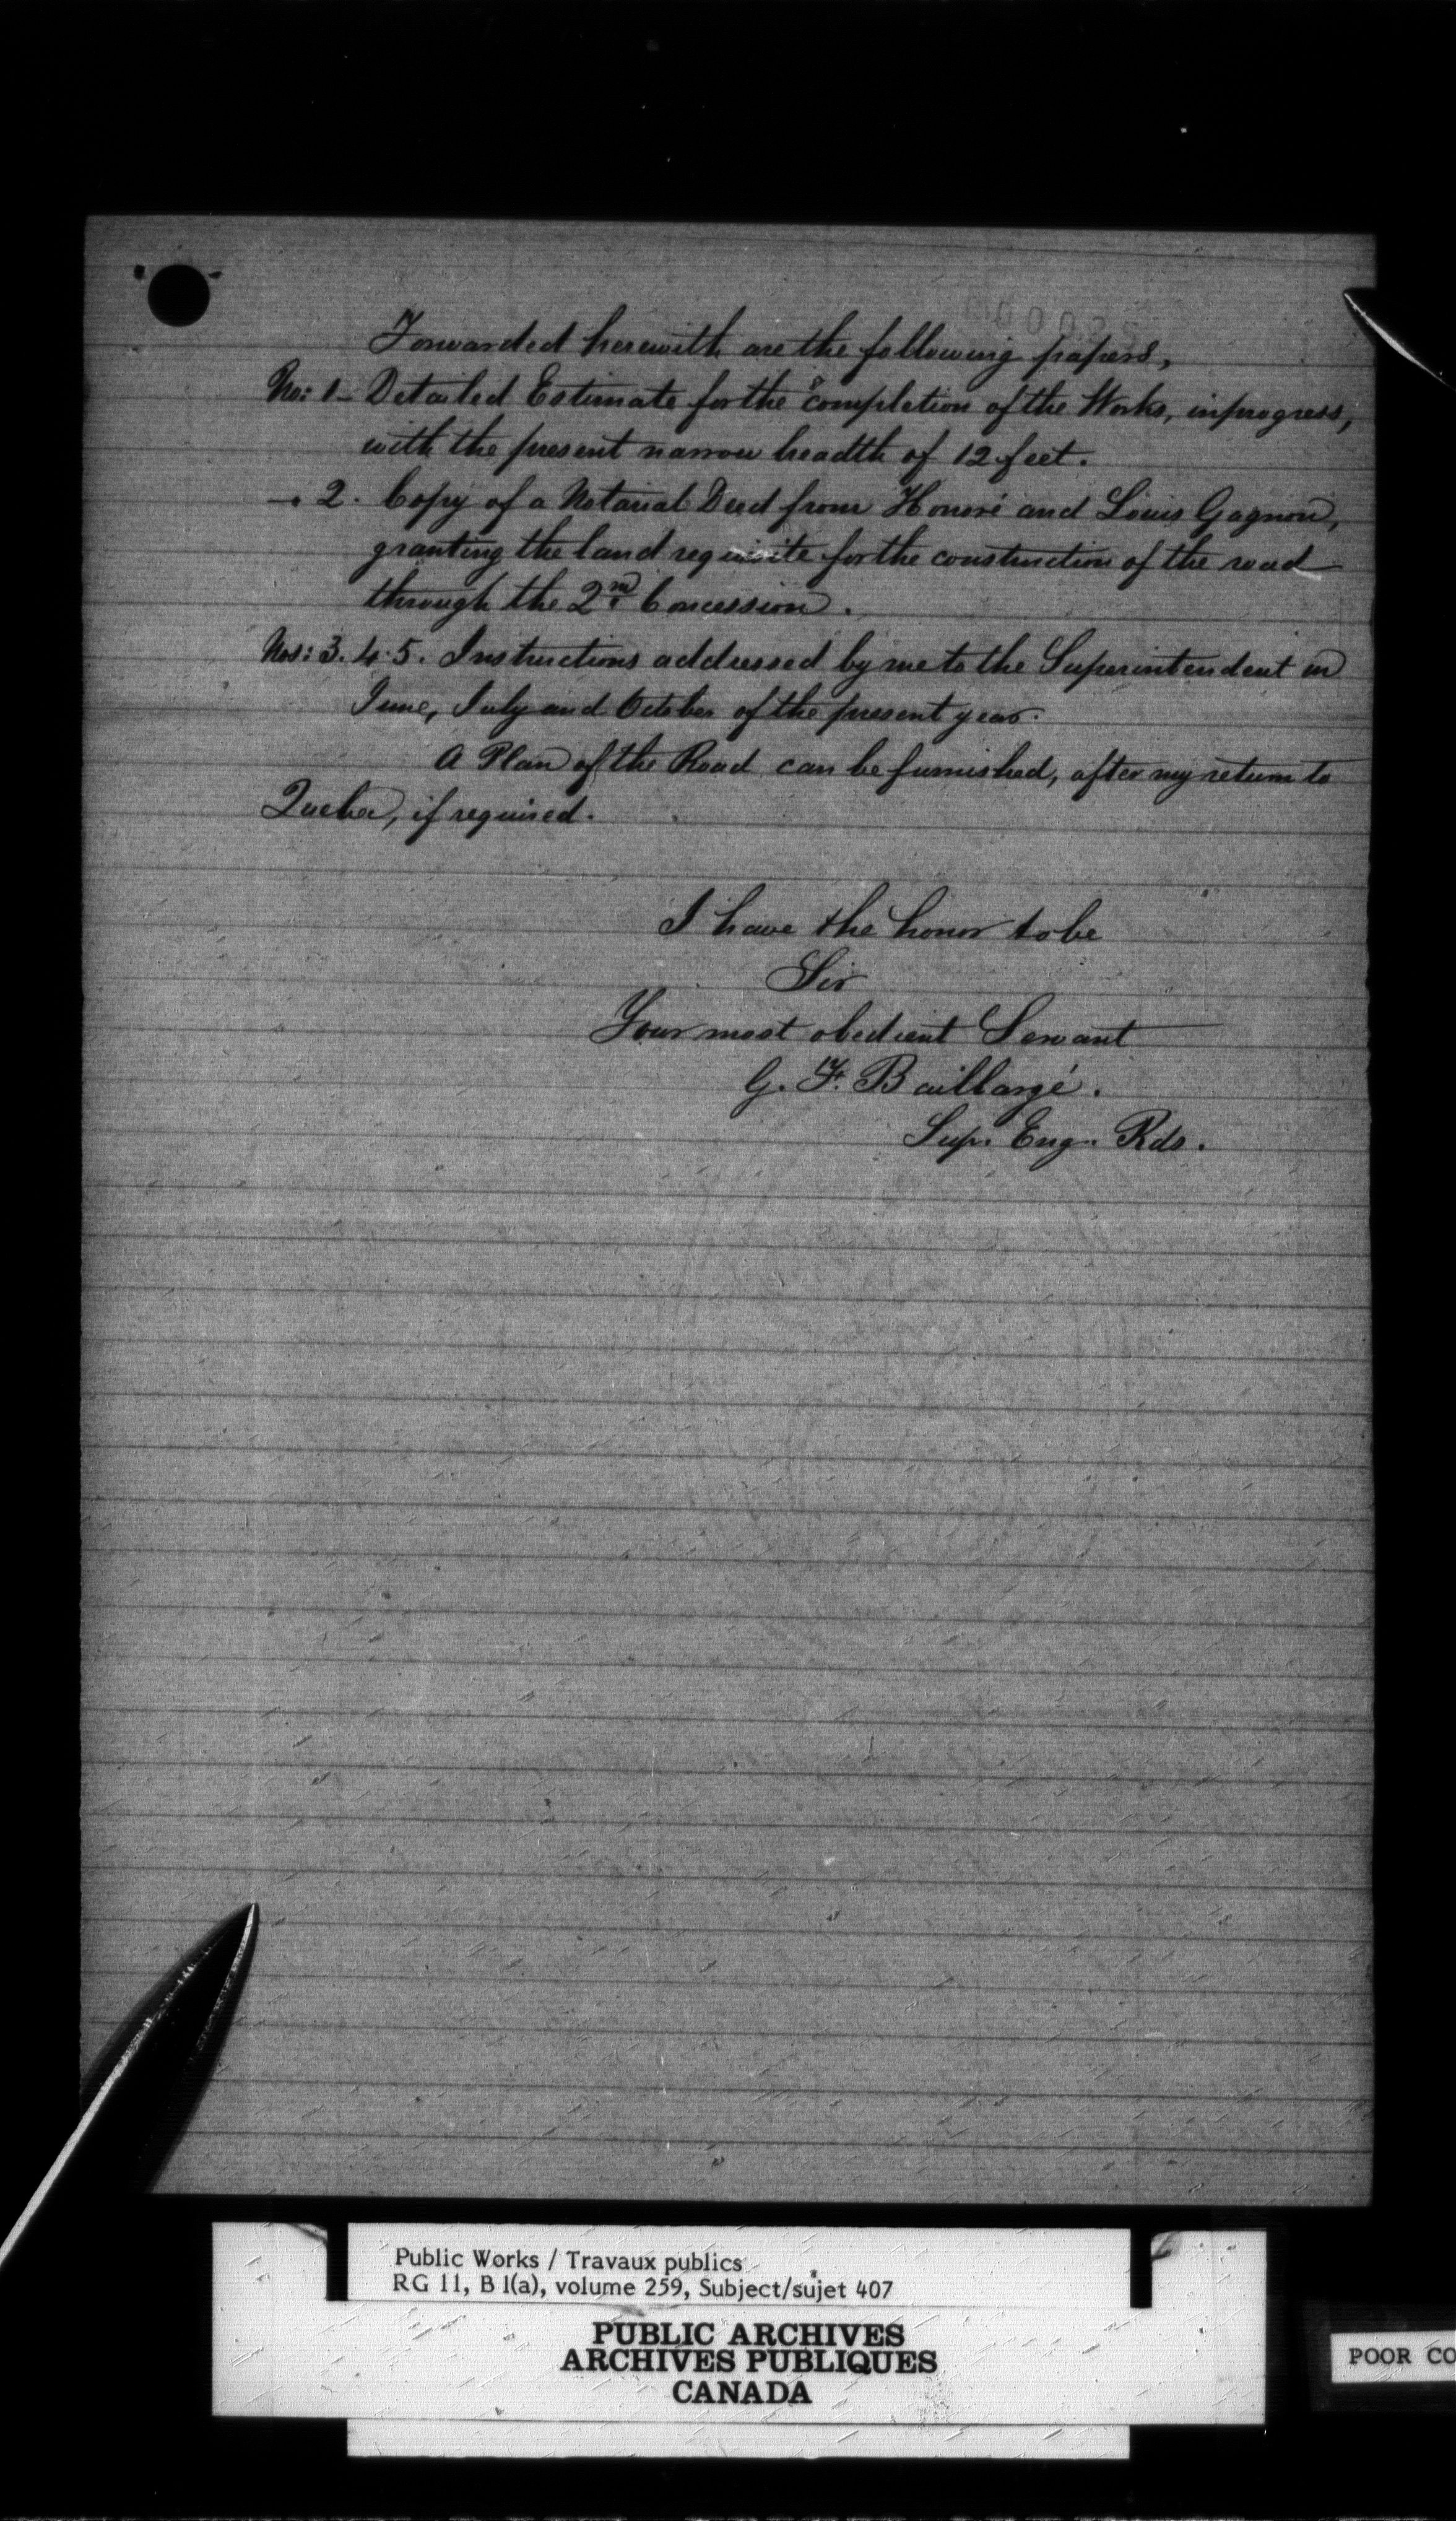 Forwarded herewith are the following papers,
No: 1 – Detailed Estimate for the completion of the Works, in progress,
with the present narrow breadth of 12 feet.
—. 2. Copy of a Notarial Deed from Honoré and Louis Gagnon,
granting the land requisite for the construction of the road
through the 2nd Concession.
Nos: 3. 4. 5. Instructions addressed by me to the Superintendent in
June, July and October of the present year.
A Plan of the Road can be furnished, after my return to
Quebec, if required.
I have the honor to be
Sir
Your most obedient Servant
G. F. Baillargé.
Sup. Eng. Rds.
Public Works / Travaux publics
RG 11, B 1(a), volume 259, Subject/sujet 407
PUBLIC ARCHIVES
ARCHIVES PUBLIQUES
CANADA
POOR CO